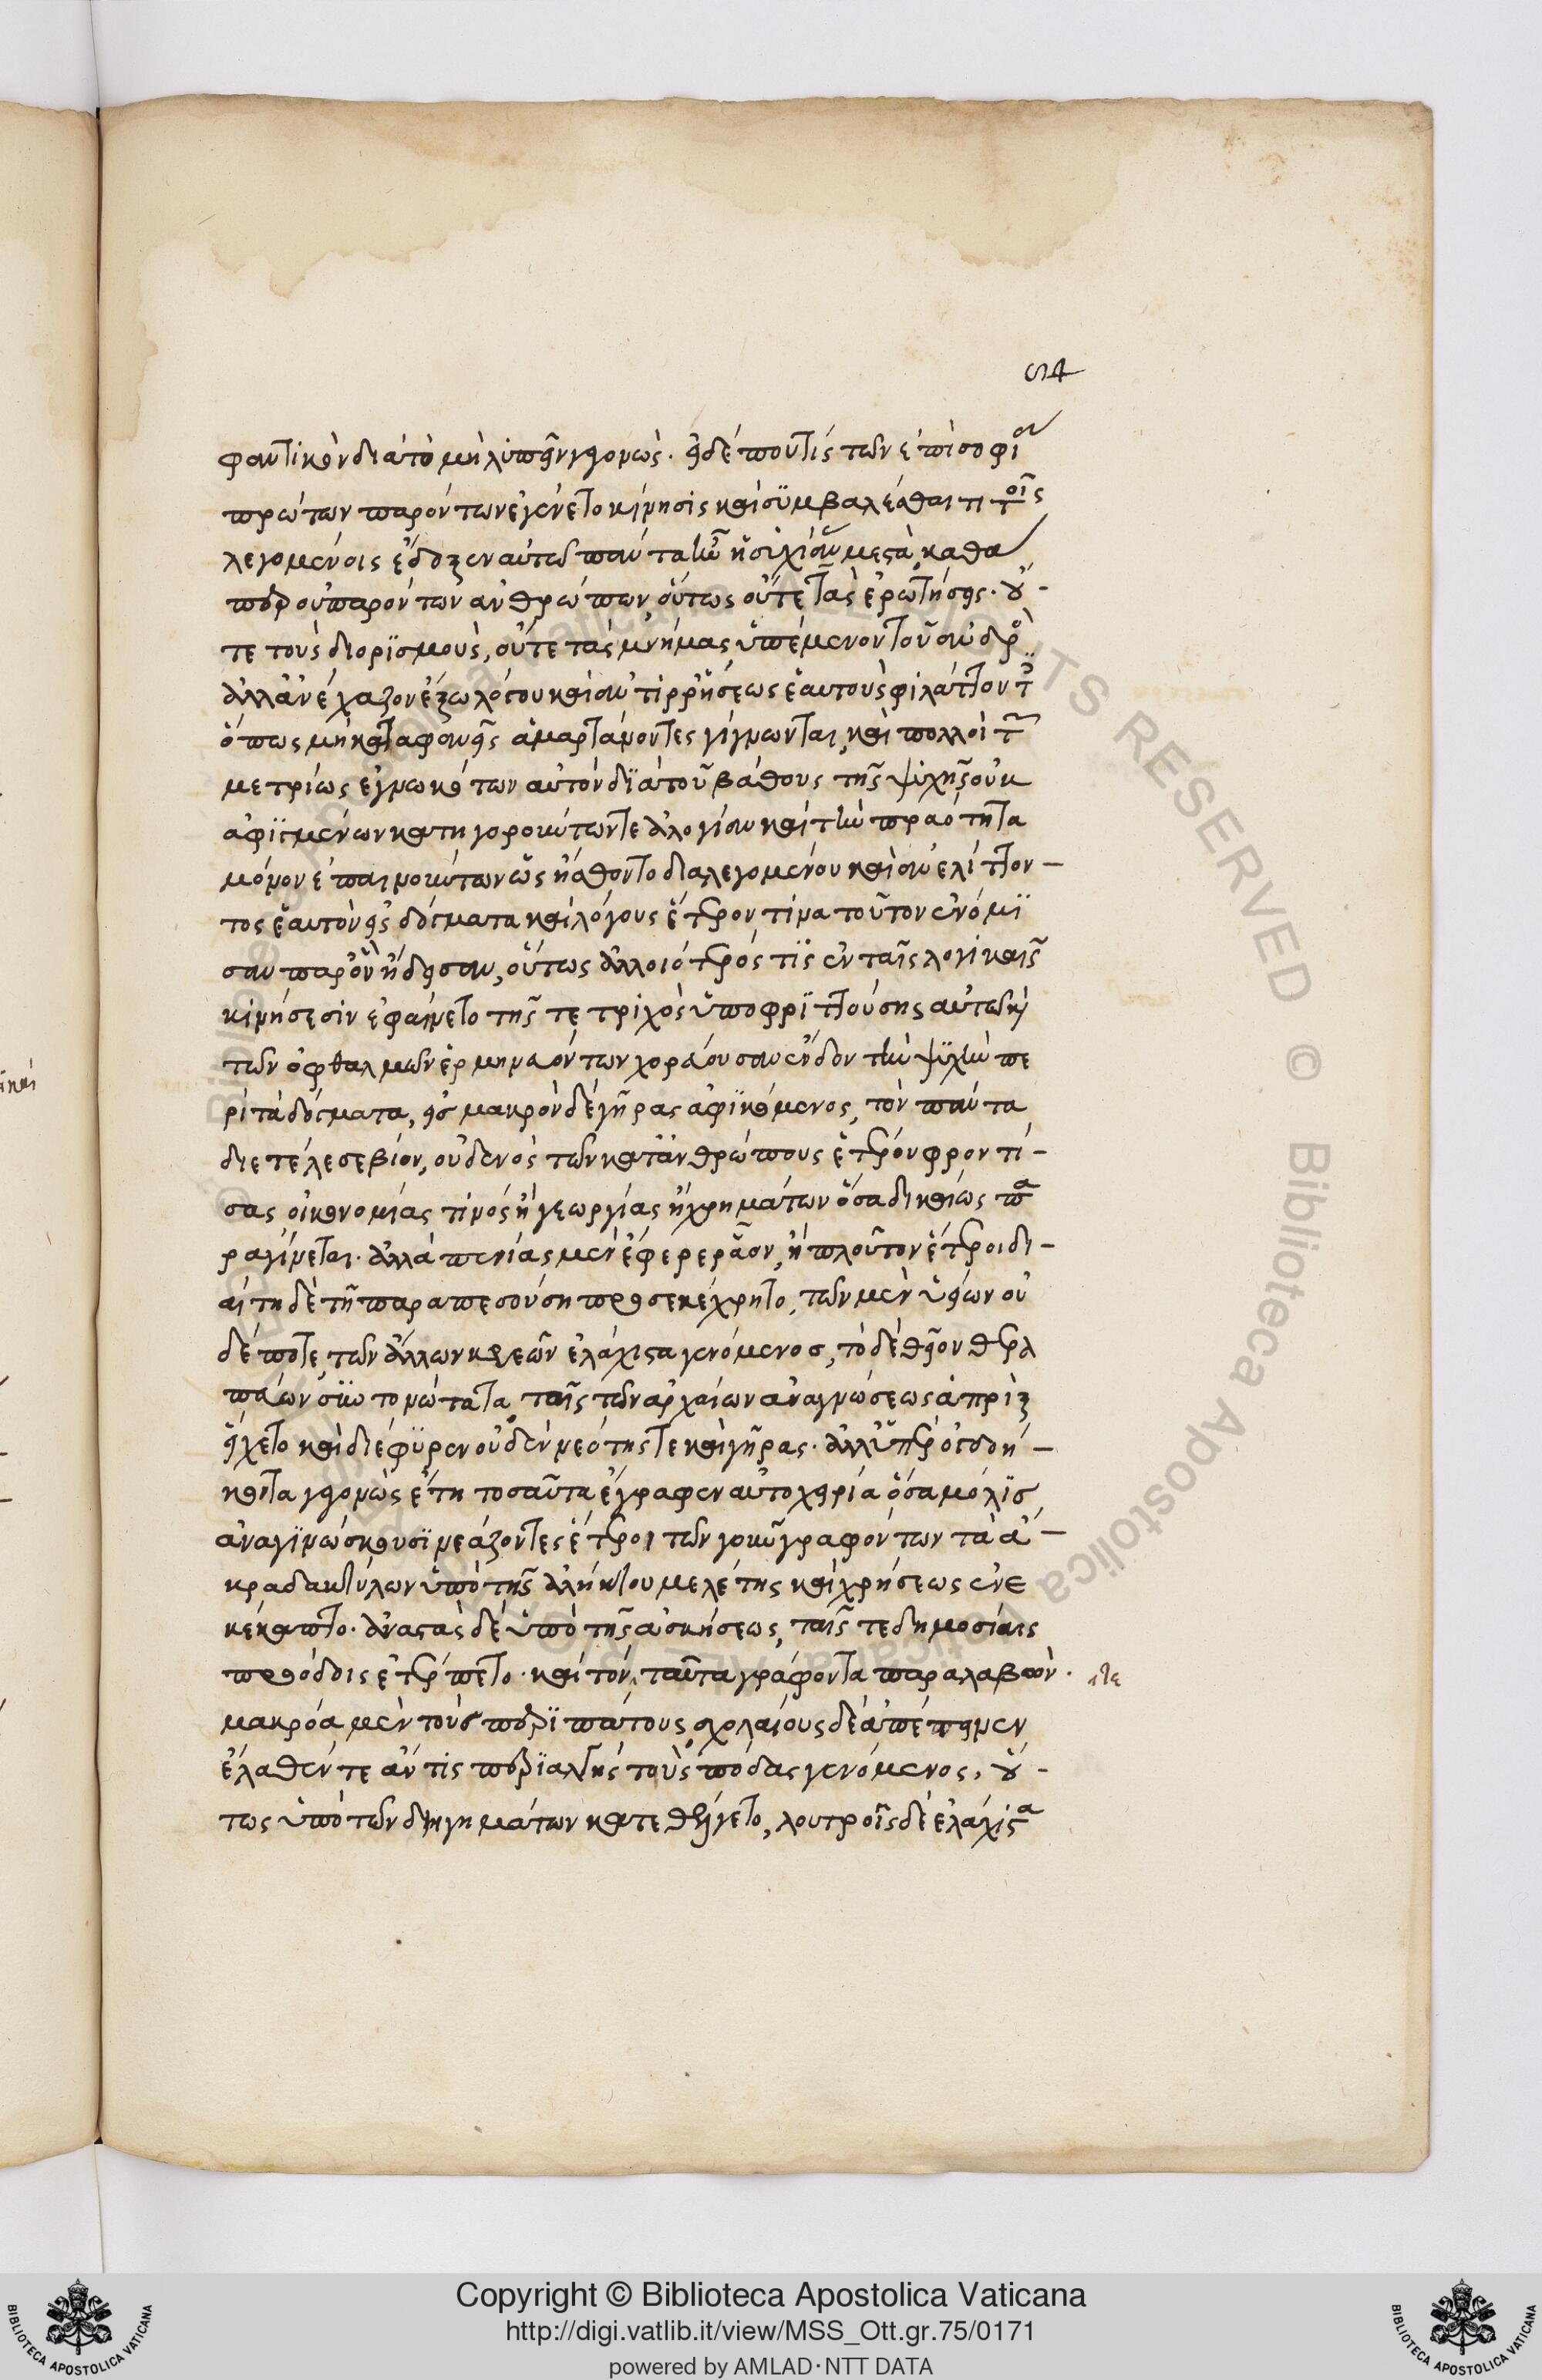 574
φαντικὸν διὰ τὸ μὴ λυπεῖν γινομὼς. εἰ δέ που τίς τῶν ἐπὶ σοφίαν
πρώτων παρόντων ἐγένετο κίνησις καὶ συμβαλέσθαι τι τοῖς
λεγομένοις ἔδοξεν αὐτῶ πάντα ἦν ἡσυχίαν μεστὰ, καθά
περ οὐ παρόντων ἀνθρώπων, οὕτως οὔτε τὰς ἐρωτήσεις. οὔ-
τε τοὺς διορισμοὺς, οὔτε τὰς μνήμας ὑπέμενον τοῦ ἀνδρὸς
ἀλλ' ἀνέχαζον ἔξω λόγου καὶ ἀντιρρήσεως ἑαυτοὺς φυλάττοντες
ὅπως μὴ καταφανεῖς ἁμαρτάνοντες γίγνωνται, καὶ πολλοὶ τῶν
μετρίως ἐγνωκότων αὐτὸν διὰ τοῦ βάθους τῆς ψυχῆς οὐκ
ἀφιγμένων κατηγορούντων τε ἀλογίαν καὶ τὴν πραότητα
μόνον ἐπαινούντων ὡς ᾔσθοντο διαλεγομένου καὶ ἀνελίττον-
τος ἑαυτὸν εἰς δόγματα καὶ λόγους ἕτερον τινα τοῦτον ἐνόμι
σαν παρ' ὃν ᾔδεσαν, οὕτως ἀλλοιότερός τις ἐν ταῖς λογικαῖς
κινήσεσιν ἐφαίνετο τῆς τε τριχὸς ὑποφριττούσης αὐτῶ καὶ
τῶν ὀφθαλμῶν ἑρμηνευόντων χορεύουσαν ἔνδον τὴν ψυχὴν πε
ρὶ τὰ δόγματα, εἰς μακρὸν δὲ γῆρας ἀφικόμενος, τὸν πάντα
διετέλεσε βίον, οὐδενὸς τῶν κατ' ἀνθρώπους ἕτερον φροντί-
σας οἰκονομίας τινός ἢ γεωργίας ἢ χρημάτων ὅσα δικαίως πα
ραγίνεται. ἀλλὰ πενίας μὲν ἔφερε ῥᾶον, ἢ πλοῦτον ἕτεροι δι-
αίτη δὲ τῆ παραπεσούση προσεκέχρητο, τῶν μὲν ὑείων οὐ
δέποτε, τῶν ἄλλων κρεῶν ἐλάχιστα γενόμενος, τὸ δὲ θεῖον θερα
πεύων συντονώτατα, ταῖς τῶν ἀρχαίων ἀναγνώσεως ἀπρὶξ
εἴχετο καὶ διέφυρεν οὐδὲν νεότης τε καὶ γῆρας. ἀλλ' ὑπὲρ ὀγδοή-
κοντα γεγονὼς ἔτη τοσαῦτα ἔγραφεν αὐτοχειρία ὅσα μόλις
ἀναγινώσκουσι νεάζοντες ἕτεροι τῶν γοῦν γραφόντων τὰ ἄ-
κρα δακτύλων ὑπὸ τῆς ἀλήκτου μελέτης καὶ χρήσεως ἐνε
κέκαπτο. ἀναστὰς δὲ ὑπὸ τῆς ἀσκήσεως, ταῖς τε δημοσίαις
προόδοις ἐτρέπετο. καὶ τὸν, ταῦτα γράφοντα παραλαβὼν.
μακρὸα μὲν τοὺς περιπάτους σχολαίους δὲ ἀπέτεινεν
ἔλαθέν τε ἄν τις περιαλγὴς τοὺς πόδας γενόμενος, οὕ-
τως ὑπὸ τῶν διηγημάτων κατεθέλγετο, λουτροῖς δὲ ἐλάχιστα
Copyright © Biblioteca Apostolica Vaticana
http://digi.vatlib.it/view/MSS_Ott.gr.75/0171
powered by AMLAD·NTT DATA